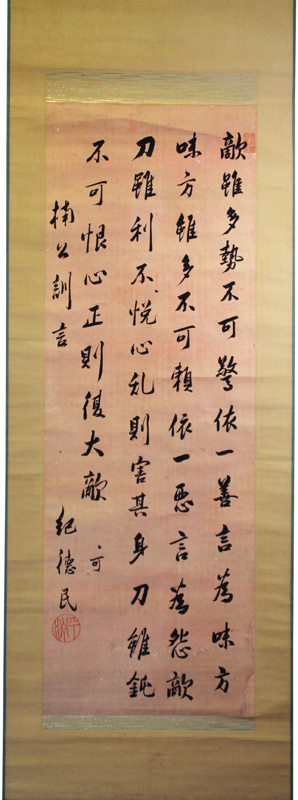 敵雖多勢不可驚依一善言為味方
味方雖多不可頼依一悪言為怨敵
刀雖利不悦心乱則害其身刀雖鈍
不可恨心正則復大敵、可
楠公訓言
紀德民